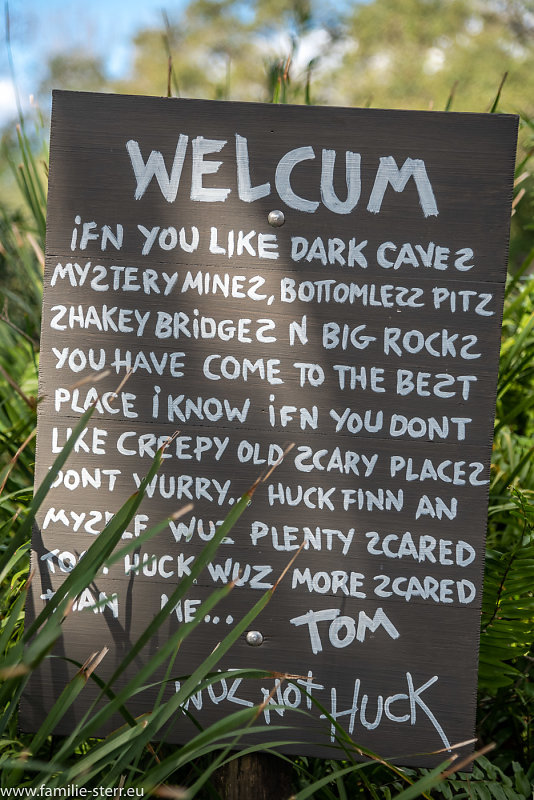 WELCUM
iFN YOU LIKE DARK CAVES
MYSTERY MINES, BOTTOMLESS PITS
SHAKEY BRiDGES N BIG ROCKS
YOU HAVE COME TO THE BEST
PLACE i KNOW iFN YOU DONT
LIKE CREEPY OLD SCARY PLACES
DONT WURRY... HUCK FINN AN
MYSELF WUZ PLENTY SCARED
TOO. HUCK WUZ MORE SCARED
THAN ME... TOM
WUZ NOt. HUCK
www.familie-sterr.eu